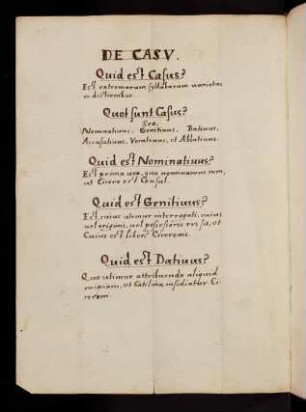 DE CASV.
Quid est Casus?
Est extremarum syllabarum varietas
in dictionibus.
Quot sunt Casus?
Sex.
Nominatiuus, Genitiuus, Datiuus,
Accusatiuus, Vocatiuus, et Ablatiuus.
Quid est Nominatiuus?
Est prima uox, qua nominamus rem,
ut Cicero est Consul.
Quid est Genitiuus?
Est, cuius utimur interrogati, cuius
uel originis, uel possessoris res sit, ut
Cuius est liber? Ciceronis.
Quid est Datiuus?
Quo utimur attribuendo aliquid
cuipiam, ut Catilina insidiatur Ci-
ceroni.